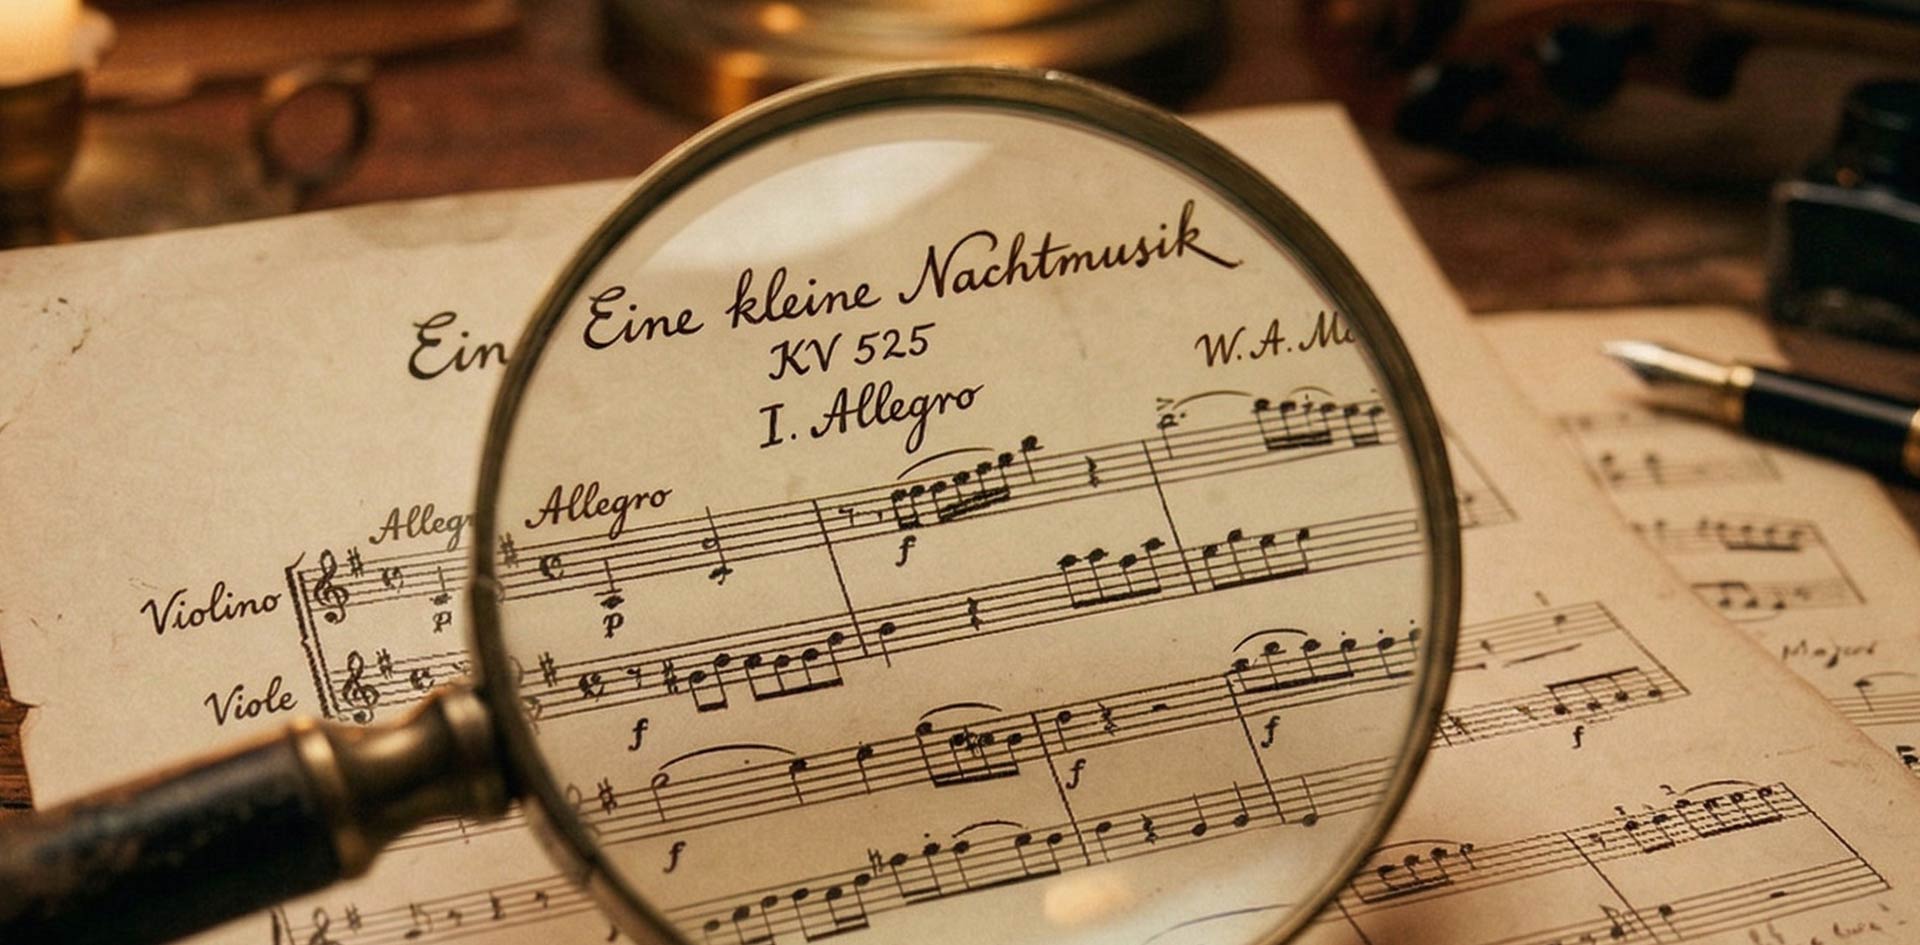 Ein
Eine kleine Nachtmusik
KV 525
W. A. M
I. Allegro
Allegr
Allegro
Violino
p
p
f
Viole
f
f
f
f
f